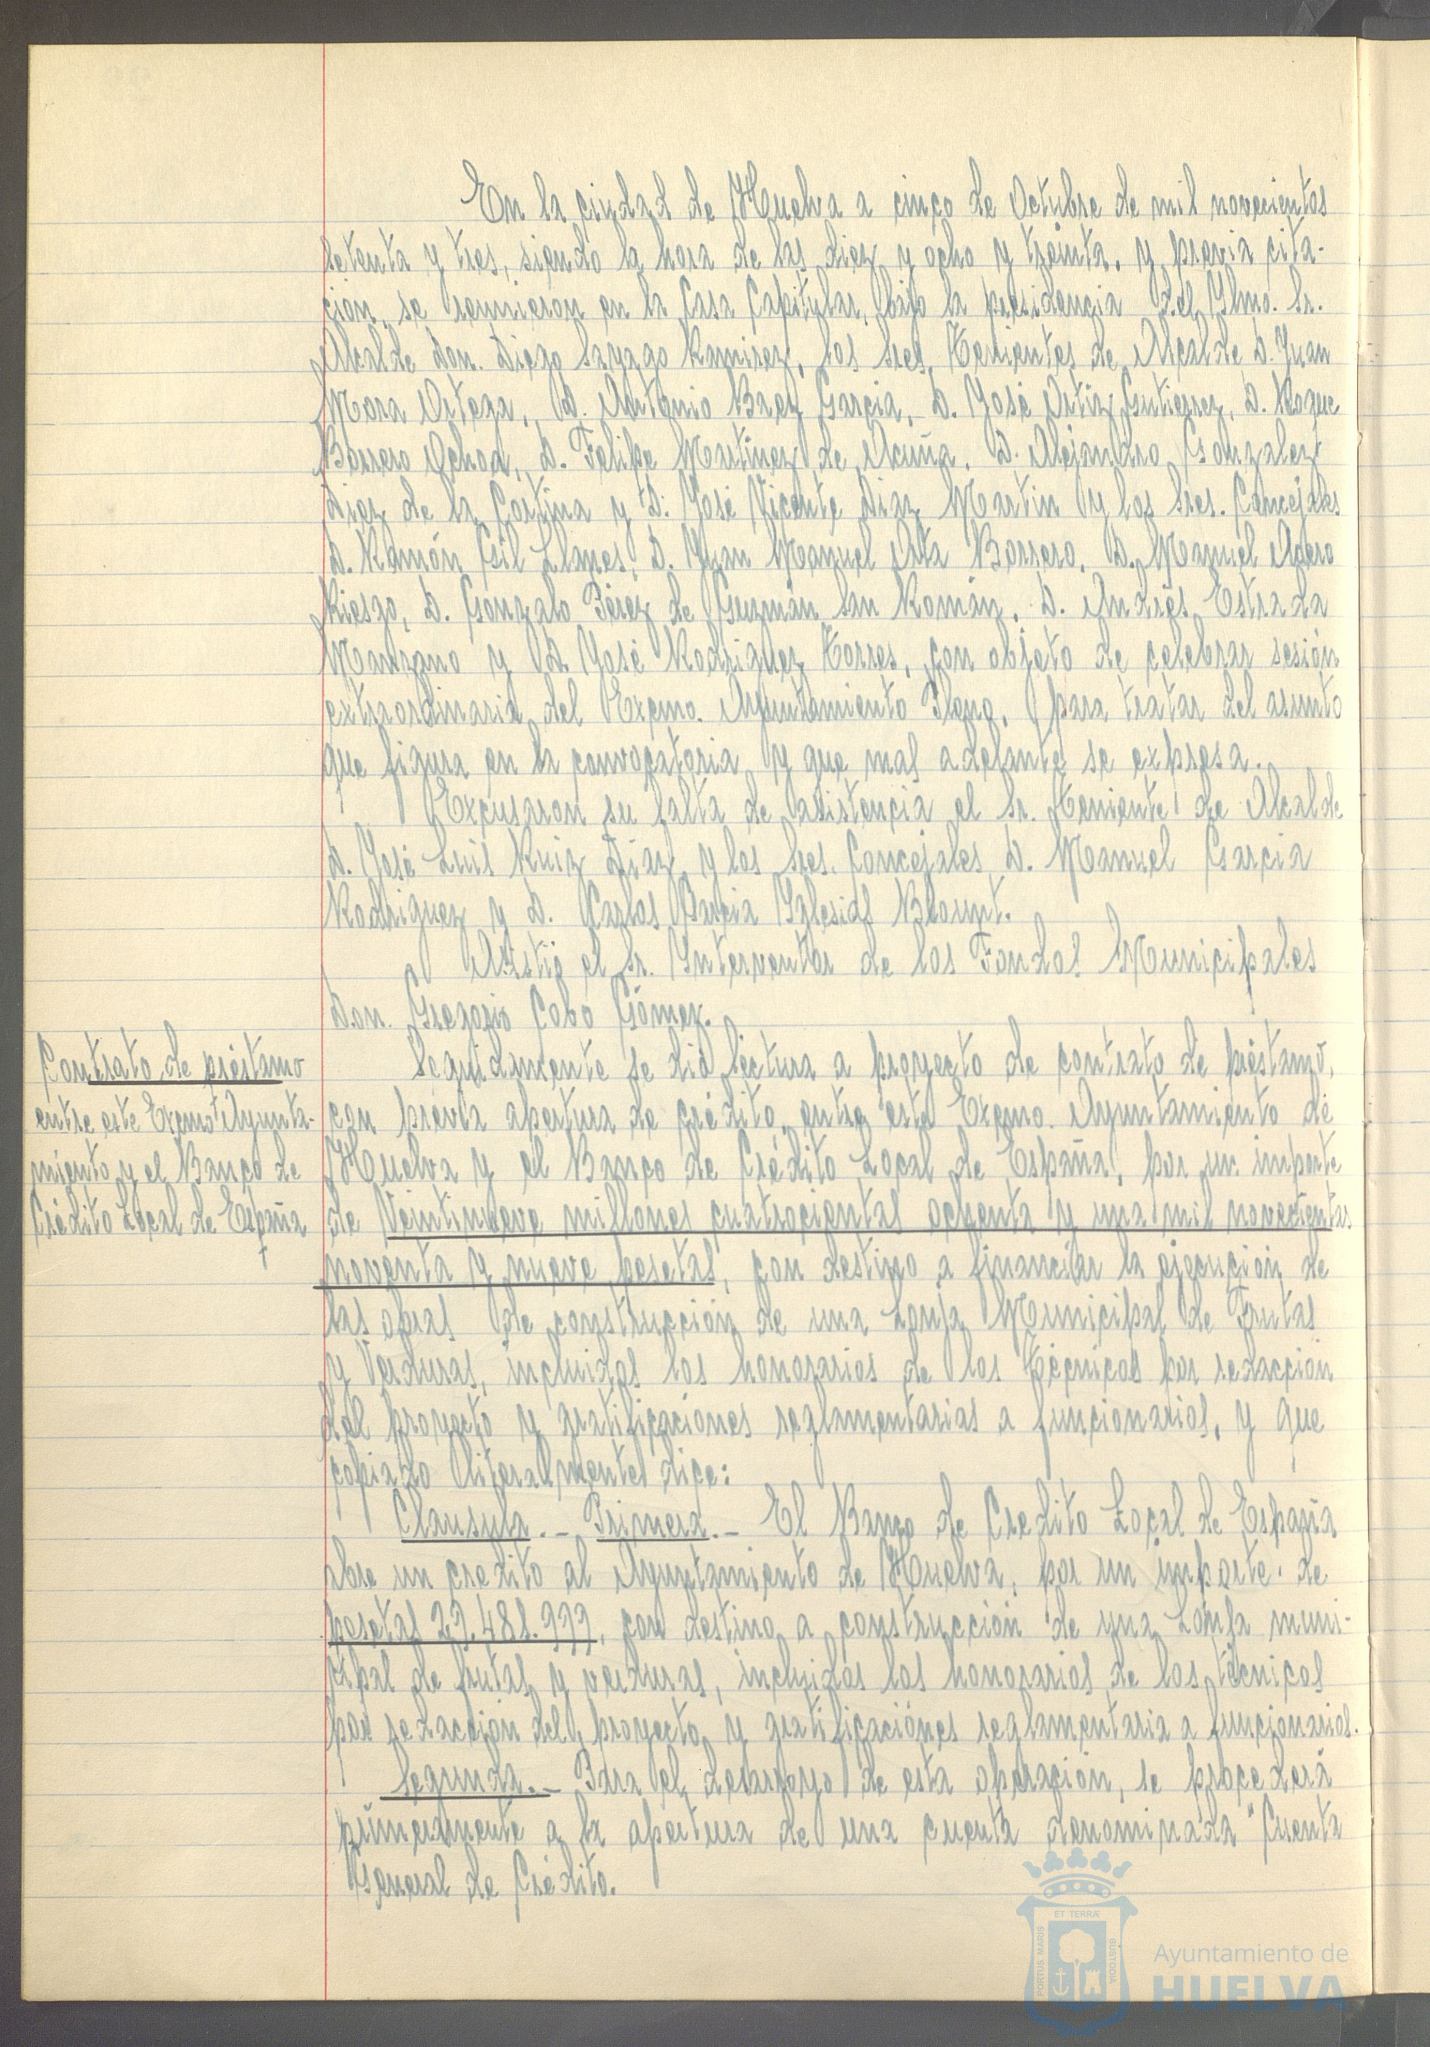 En la ciudad de Huelva a cinco de Octubre de mil novecientos
setenta y tres, siendo la hora de las diez y ocho y treinta, y previa cita-
ción, se reunieron en la Casa Capitular, bajo la presidencia del Ylmo. Sr.
Alcalde Don. Diego Sayago Ramirez, los Sres. Tenientes de Alcalde D. Juan
Mora Ortega, D. Antonio Baez Garcia, D. José Ortiz Gutierrez, D. Roque
Borrero Ochoa, D. Felipe Martinez de Acuña, D. Alejandro Gonzalez
Diez de la Cortina y D. José Vicente Diaz Martin y los Sres. Concejales
D. Ramón Gil Llanes, D. Juan Manuel Arta Borrero, D. Manuel
Riesgo, D. Gonzalo Pérez de Guzmán San Román, D. Andrés Estrada
Manzano y D. José Rodriguez Torres, con objeto de celebrar sesión
extraordinaria del Excmo. Ayuntamiento Pleno, para tratar del asunto
que figura en la convocatoria y que mas adelante se expresa.
Excusaron su falta de asistencia el Sr. Teniente de Alcalde
D. José Luis Ruiz Diaz y los Sres. Concejales D. Manuel Garcia
Rodriguez y D. Carlos Barcia Yglesias Blount.
Asistió el Sr. Ynterventor de los Fondos Municipales
Don. Gregorio Cobo Gómez.
Contrato de préstamo
entre este Excmo Ayunta-
miento y el Banco de
Crédito Local de España
Seguidamente se dió lectura a proyecto de contrato de préstamo,
con previa apertura de crédito, entre este Excmo. Ayuntamiento de
Huelva y el Banco de Crédito Local de España, por un importe
de Veintinueve millones cuatrocientas ochenta y una mil novecientas
noventa y nueve pesetas, con destino a financiar la ejecución de
las obras de construcción de una Lonja Municipal de Frutas
y Verduras, incluidos los honorarios de los Técnicos por redacción
del proyecto y gratificaciones reglamentarias a funcionarios, y que
copiado literalmente dice:
Clausula.- Primera.- El Banco de Credito Local de España
abre un credito al Ayuntamiento de Huelva, por un importe de
pesetas 29.481.999, con destino a construcción de una Lonja muni-
cipal de frutas y verduras, incluidos los honorarios de los técnicos
por redaccion del proyecto y gratificaciónes reglamentaria a funcionarios.
Segunda.- Para el desarroyo de esta operación, se procederá
primeramente a la apertura de una cuenta denominada "Cuenta
General de Crédito.
PORTUS MARIS
ET TERRÆ
CUSTODIA
Ayuntamiento de
HUELVA